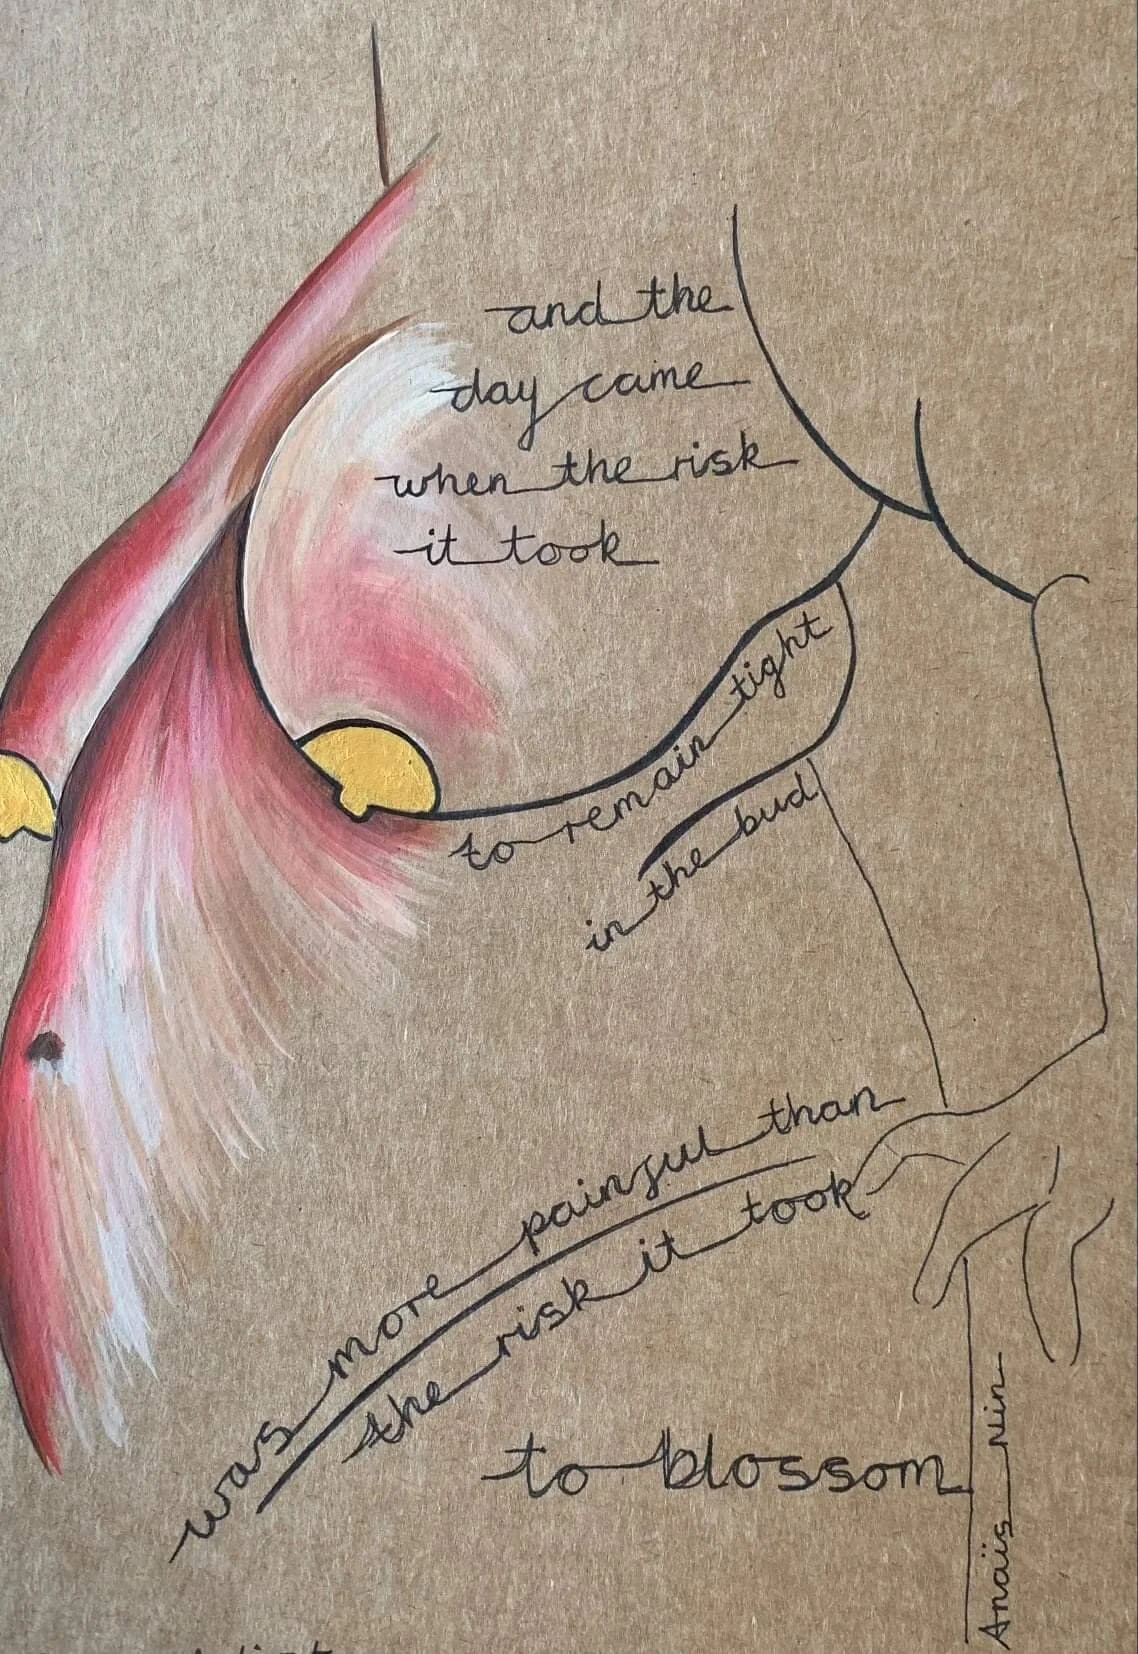 and the
day came
when the risk
it took
to remain tight
in the bud
was more painful than
the risk it took
to blossom
Anaïs Nin